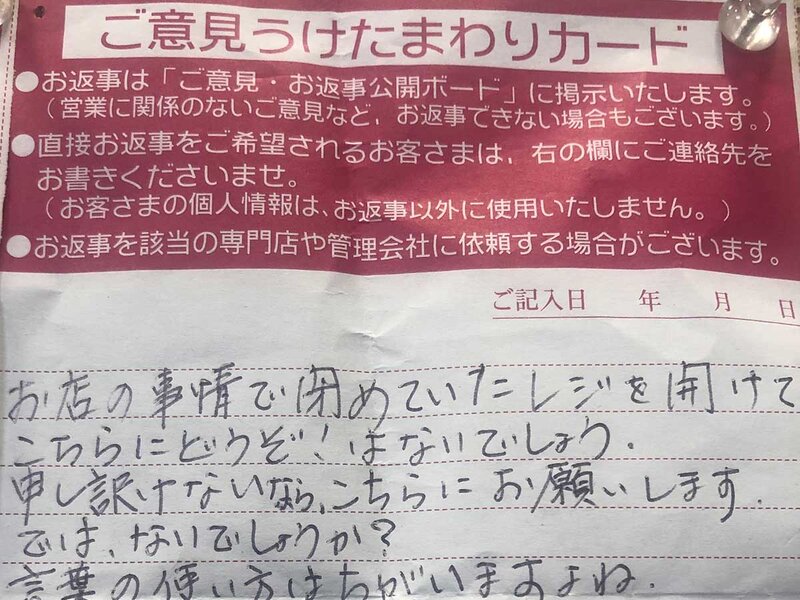 ご意見うけたまわりカード
●お返事は「ご意見・お返事公開ボード」に掲示いたします。
（営業に関係のないご意見など、お返事できない場合もございます。）
●直接お返事をご希望されるお客さまは、右の欄にご連絡先を
お書きくださいませ。
（お客さまの個人情報は、お返事以外に使用いたしません。）
●お返事を該当の専門店や管理会社に依頼する場合がございます。
ご記入日　年　月　日
お店の事情で閉めていたレジを開けて
こちらにどうぞ！はないでしょう.
申し訳けないなら、こちらにお願いします.
では、ないでしょうか?
言葉の使い方はちがいますよね.